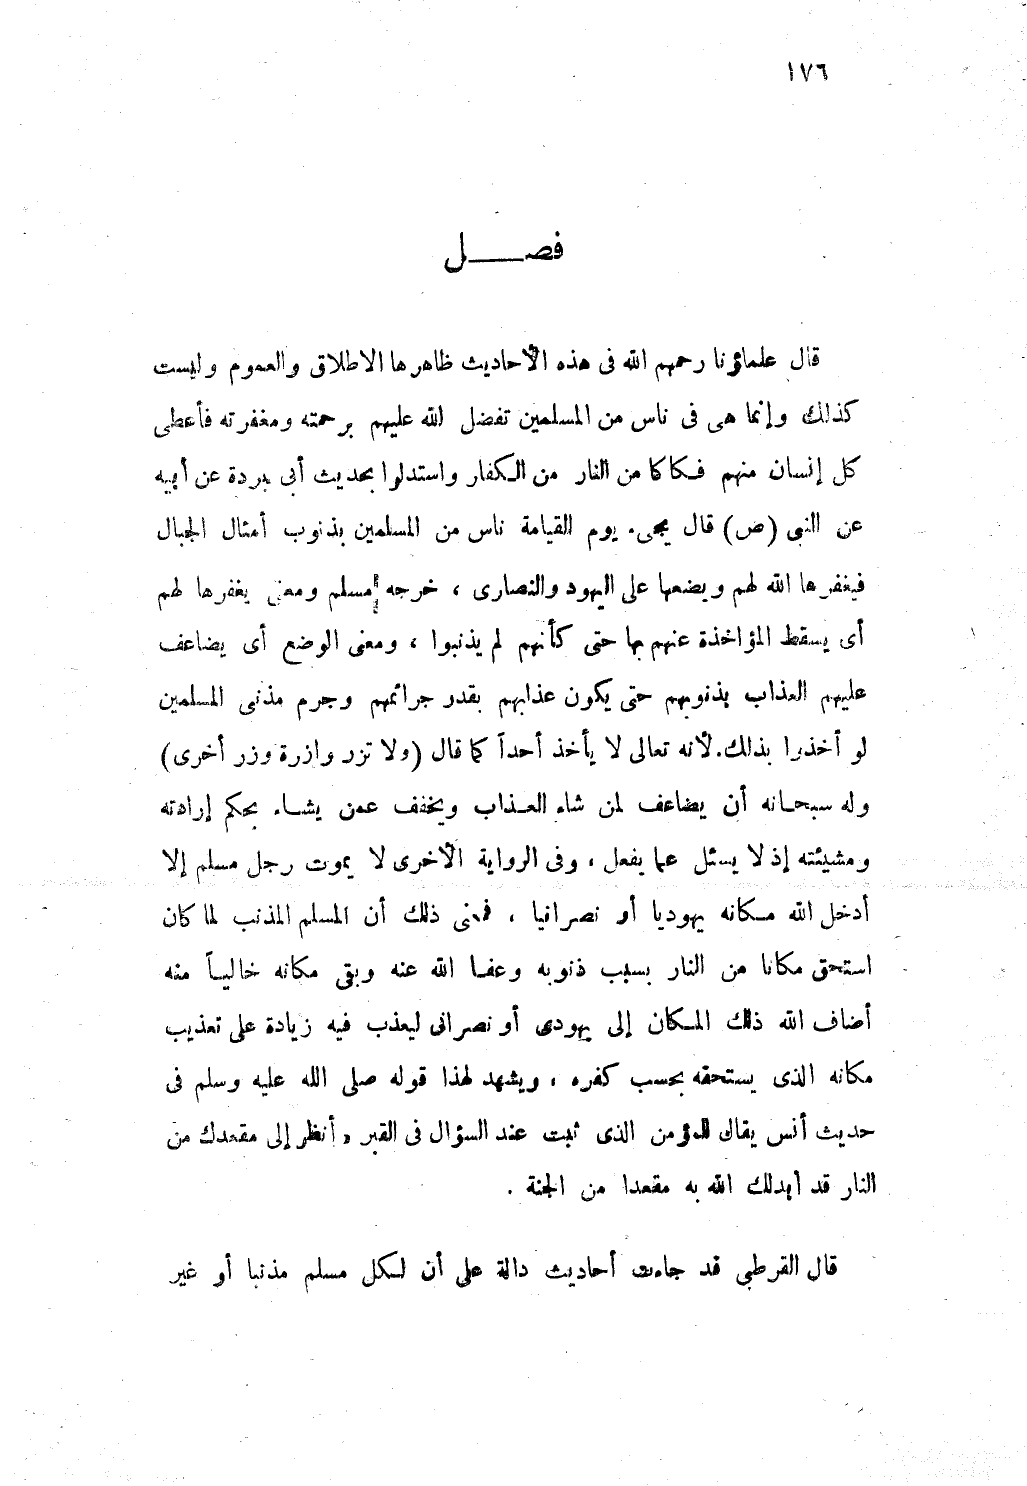 ١٧٦
فصـــل
قال علماؤنا رحمهم الله فى هذه الأحاديث ظاهرها الاطلاق والعموم وليست
كذلك وإنما هى فى ناس من المسلمين تفضل الله عليهم برحمته ومغفرته فأعطى
كل إنسان منهم فكاكا من النار من الكفار واستدلوا بحديث أبى بردة عن أبيه
عن النبى (ص) قال يجىء يوم القيامة ناس من المسلمين بذنوب أمثال الجبال
فيغفرها الله لهم ويضعها على اليهود والنصارى ، خرجه مسلم ومعنى يغفرها لهم
أى يسقط المؤاخذة عنهم بها حتى كأنهم لم يذنبوا ، ومعنى الوضع أى يضاعف
عليهم العذاب بذنوبهم حتى يكون عذابهم بقدر جرائمهم وجرم مذنبى المسلمين
لو أخذوا بذلك. لأنه تعالى لا يأخذ أحداً كما قال (ولا تزر وازرة وزر أخرى)
وله سبحانه أن يضاعف لمن شاء العذاب ويخفف عمن يشاء بحكم إرادته
ومشيئته إذ لا يسئل عما يفعل ، وفى الرواية الأخرى لا يموت رجل مسلم إلا
أدخل الله مكانه يهوديا أو نصرانيا ، فمعنى ذلك أن المسلم المذنب لما كان
استحق مكانا من النار بسبب ذنوبه وعفا الله عنه وبقى مكانه خالياً منه
أضاف الله ذلك المكان إلى يهودى أو نصرانى ليعذب فيه زيادة على تعذيب
مكانه الذى يستحقه بحسب كفره ، ويشهد لهذا قوله صلى الله عليه وسلم فى
حديث أنس يقال للمؤمن الذى ثبت عند السؤال فى القبر « أنظر إلى مقعدك من
النار قد أبدلك الله به مقعدا من الجنة .
قال القرطبى قد جاءت أحاديث دالة على أن لكل مسلم مذنبا أو غير